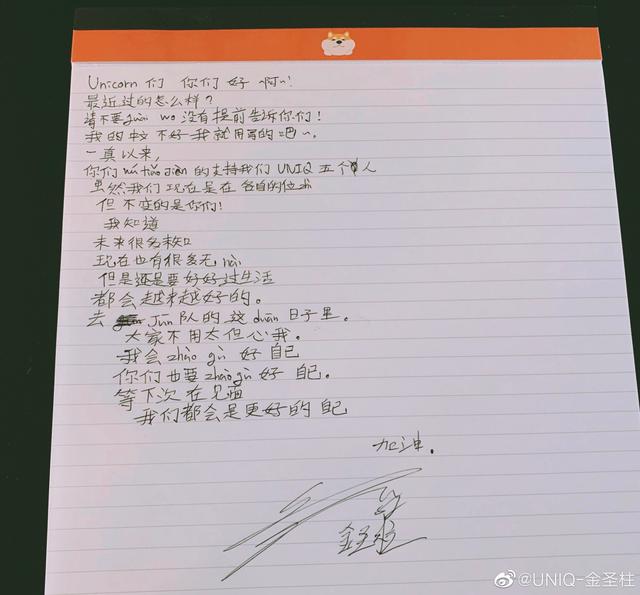 Unicorn 们 你们 好 啊~!
最近过的怎么样?
请不要 guài wo 没有提前告诉你们!
我的中文 不好 我就用写的 吧~.
一真以来,
你们 的支持我们 UNIQ 五个人
虽然我们 现在是在 各自的位
但 不变的是你们!
我知道
未来很多未知
现在也有很多无 nài
但是还是要好好过生活
都会越来越好的。
去 Jūn 队的 这 duān 日子里。
大家不用太但心我。
我会 zhào gù 好 自己
你们也要 zhào gù 好 自己.
等下次 在 见面
我们都会是更好的 自己
加油.
金圣柱
@UNIQ-金圣柱